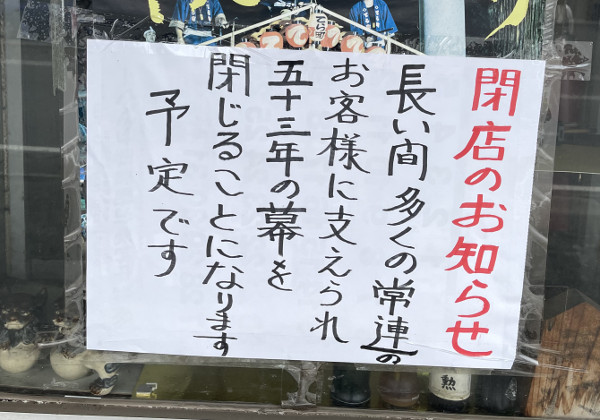 閉店のお知らせ
長い間多くの常連の
お客様に支えられ
五十三年の幕を
閉じることになります
予定です
勲